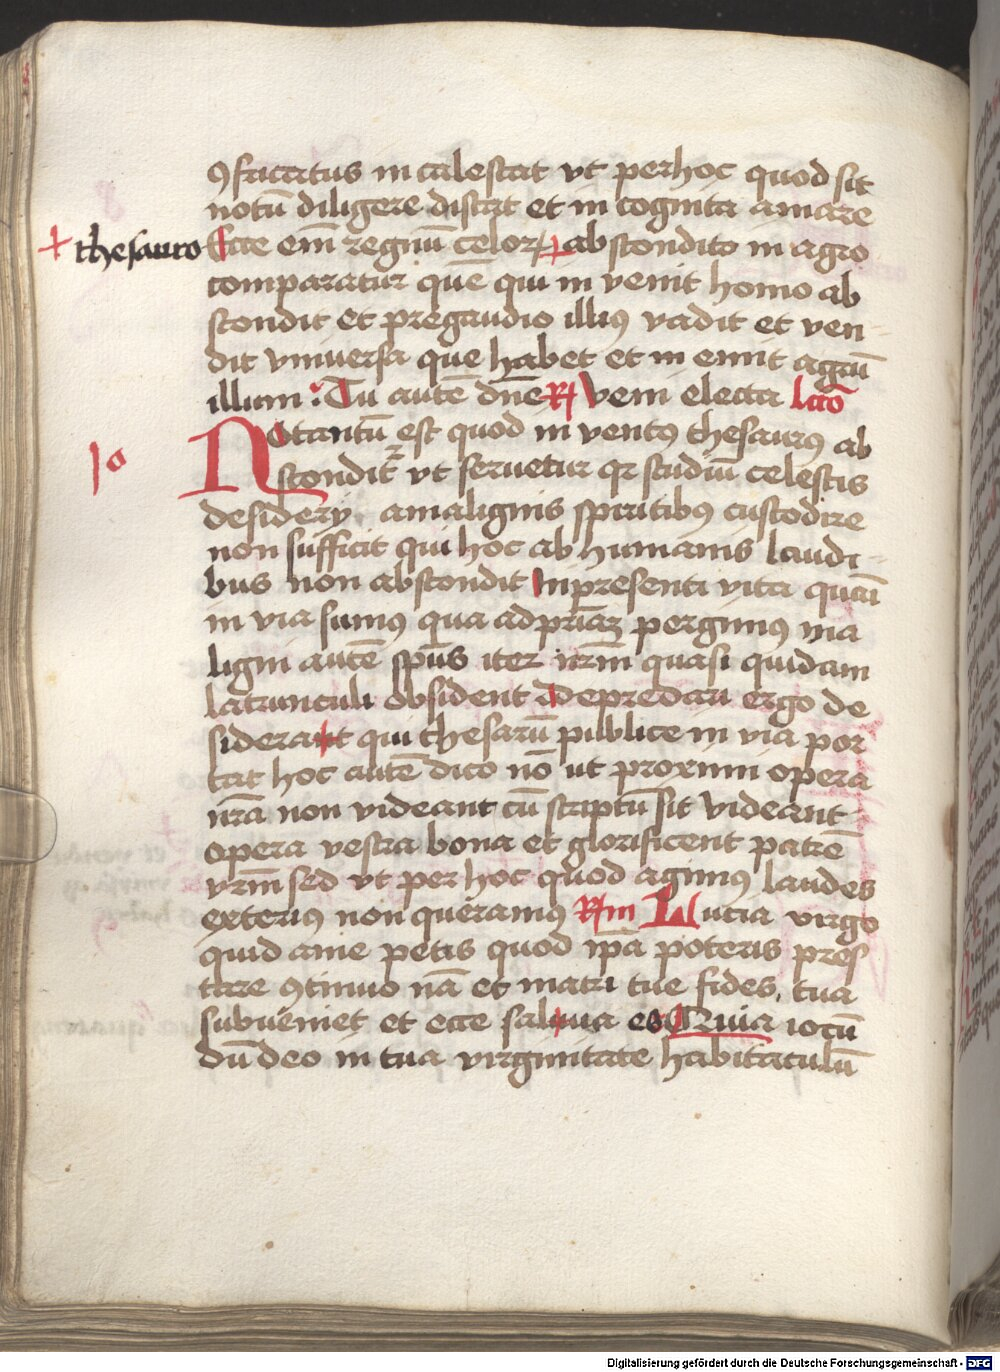 ꝯfricatus in calescat vt per hoc quod scit
notū diligere discat et in cognita amare
+ thesauro Ecce em̄ regnū celoꝝ + abscondito in agro
comparatur quē qui in venit homo ab
scondit et pre gaudio illiꝰ vadit et ven-
dit vniuersa que habet et in emit agrū
illum : Tu autē dn̄e R Veni electa lc̄o
Notantū est quod in ventꝰ thesaurꝰ ab
scondit᷑ vt seruetur qꝛ studiū celestis
desidery a malignis spiritibꝰ custodire
non sufficit qui hoc ab humanis laudi-
bus non abscondit In presenti vita quasi
in via sumꝰ qua ad pr̄iaꝫ pergimꝰ ma
ligni autē sp̄us iter nr̄m quasi quidam
latrunculi obsident Depredari ergo de
siderat qui thesarū publice in via por
tat hoc autē dico nō ut proximi opera
nr̄a non videant cū scriptū sit videant
opera vestra bona et glorificent patrē
vr̄m sed vt per hoc quod agimꝰ laudes
exteriꝰ non queramus Rm Lucia virgo
quid a me petis quod ip̄a poteris pres
tare ꝯtinuo nā et matri tue fides tua
subueniet et ecce saluata es Quia iocū
dū deo in tua virginitate habitaculū
10
Digitalisierung gefördert durch die Deutsche Forschungsgemeinschaft - DFG